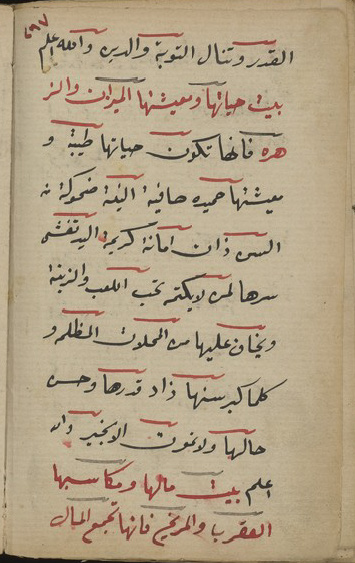 ٦٩٧
القدر وتنال التوبة والدين والله اعلم
بيت حياتها ومعيشتها الميزان والز
هره فانها تكون حياتها طيبة و
معيشتها حميده صافية النية ضحوكة
السن ذات امانة كريمة اليد تفشي
سرها لمن لا يكتمه تحب اللعب والزينة
ويخاف عليها من المحلات المظلمه و
كلما كبر سنها زاد قدرها وحسن
حالها ولا تموت الا بخير والله
اعلم بيت مالها ومكاسبها
العقرب والمريخ فانها تجمع المال